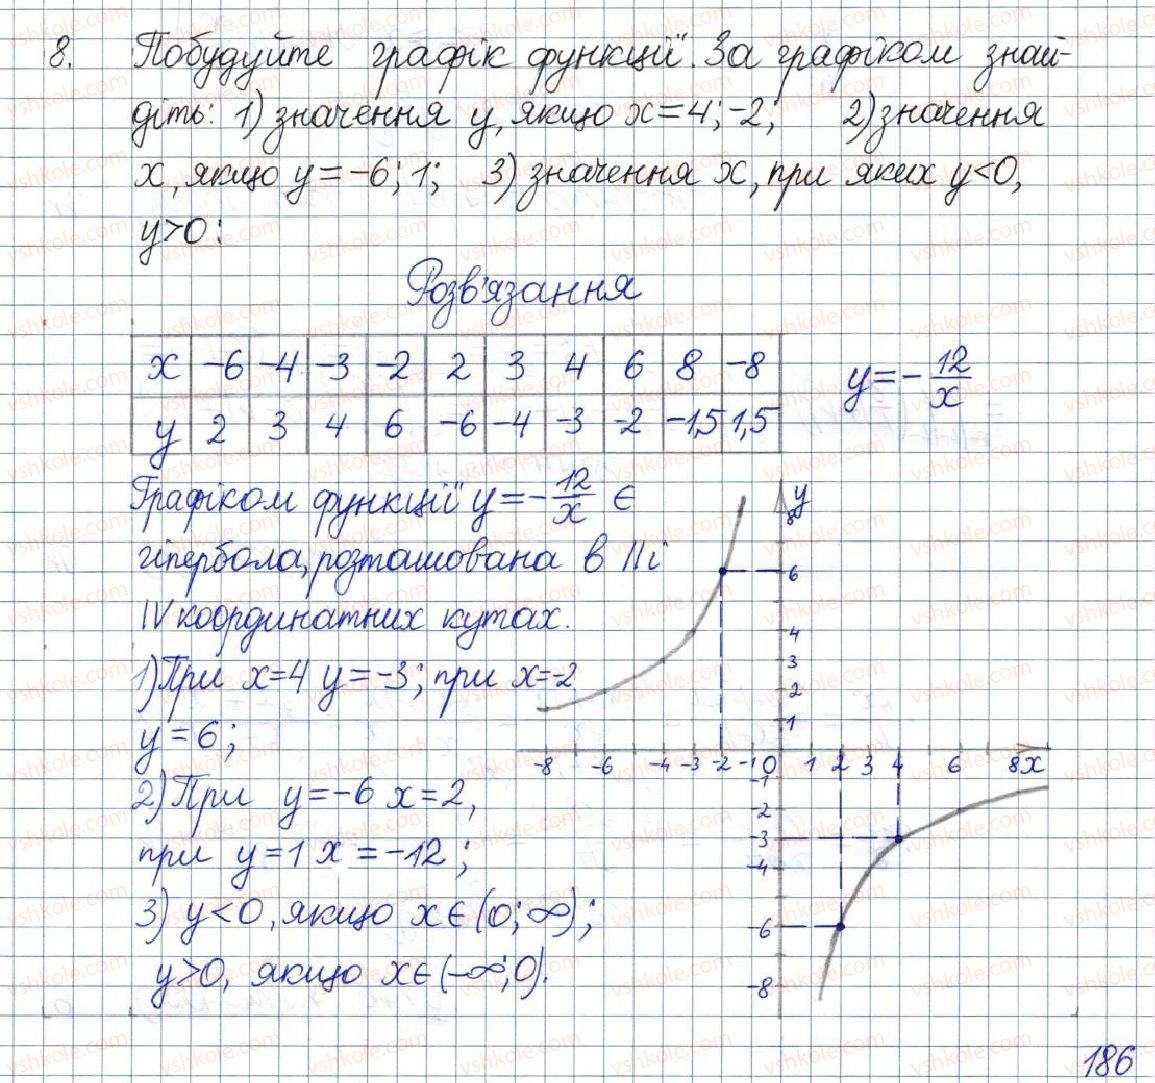 8. Побудуйте графік функції. За графіком знай-
діть: 1) значення y, якщо x=4; -2; 2) значення
x, якщо y=-6; 1; 3) значення x, при яких y<0,
y>0:
Розв'язання
x -6 -4 -3 -2 2 3 4 6 8 -8
y 2 3 4 6 -6 -4 -3 -2 -1,5 1,5
y=-12/x
Графіком функції y=-12/x є
гіпербола, розташована в II і
IV координатних кутах.
1) При x=4 y=-3; при x=-2
y=6;
2) При y=-6 x=2,
при y=1 x=-12;
3) y<0, якщо x∈(0;∞);
y>0, якщо x∈(-∞;0).
y
8
6
4
3
2
1
-8 -6 -4 -3 -2 -1 0 1 2 3 4 6 8 x
-1
-2
-3
-4
-6
-8
186
vshkole.com